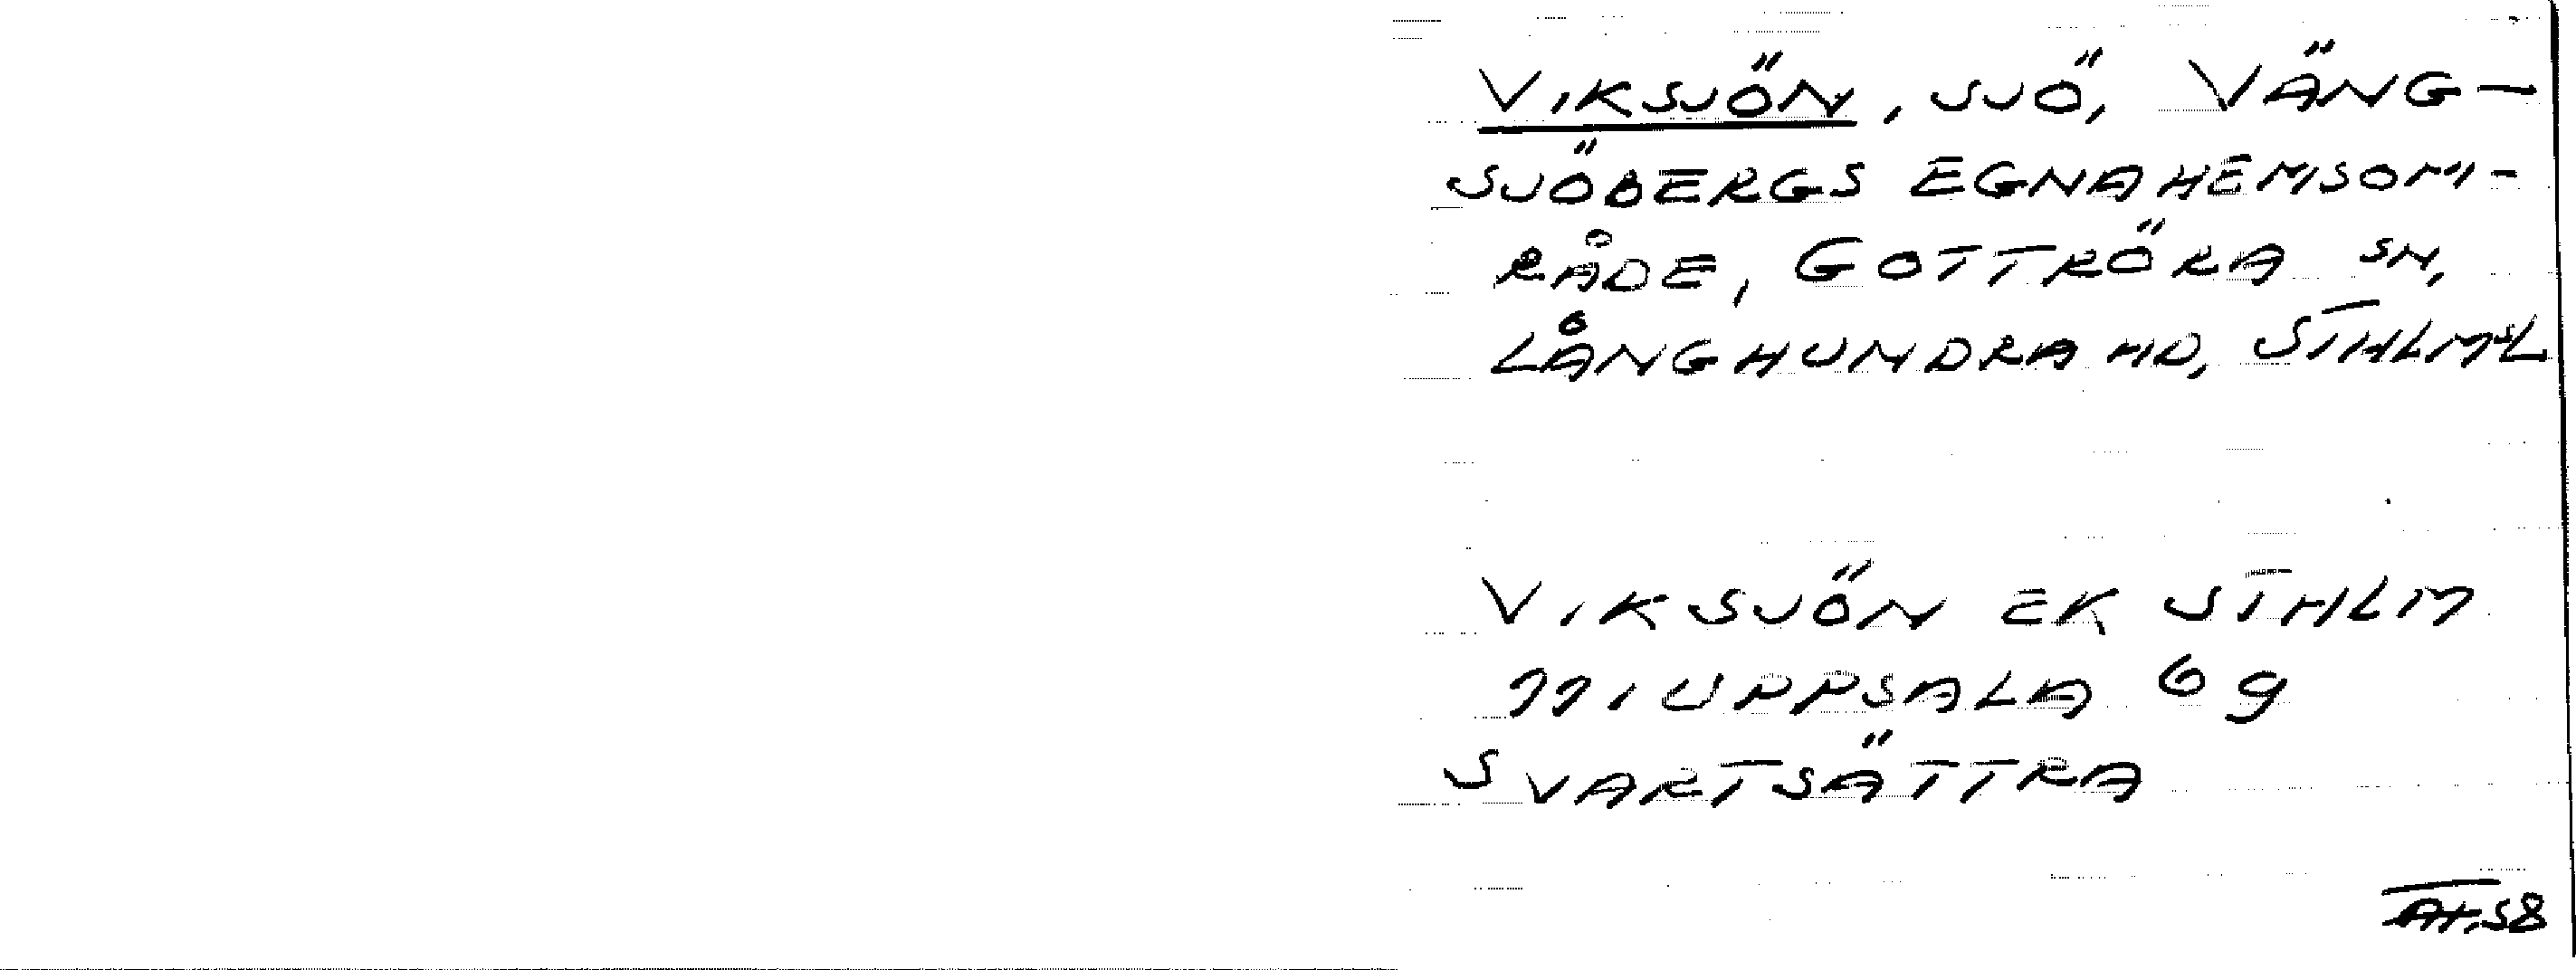 VIKSJÖN, SJÖ, VÄNG-
SJÖBERGS EGNAHEMSOM-
RÅDE, GOTTRÖRA SN,
LÅNGHUNDRA HD, STHLMSL
VIKSJÖN EK STHLM
111 UPPSALA 69
SVARTSÄTTRA